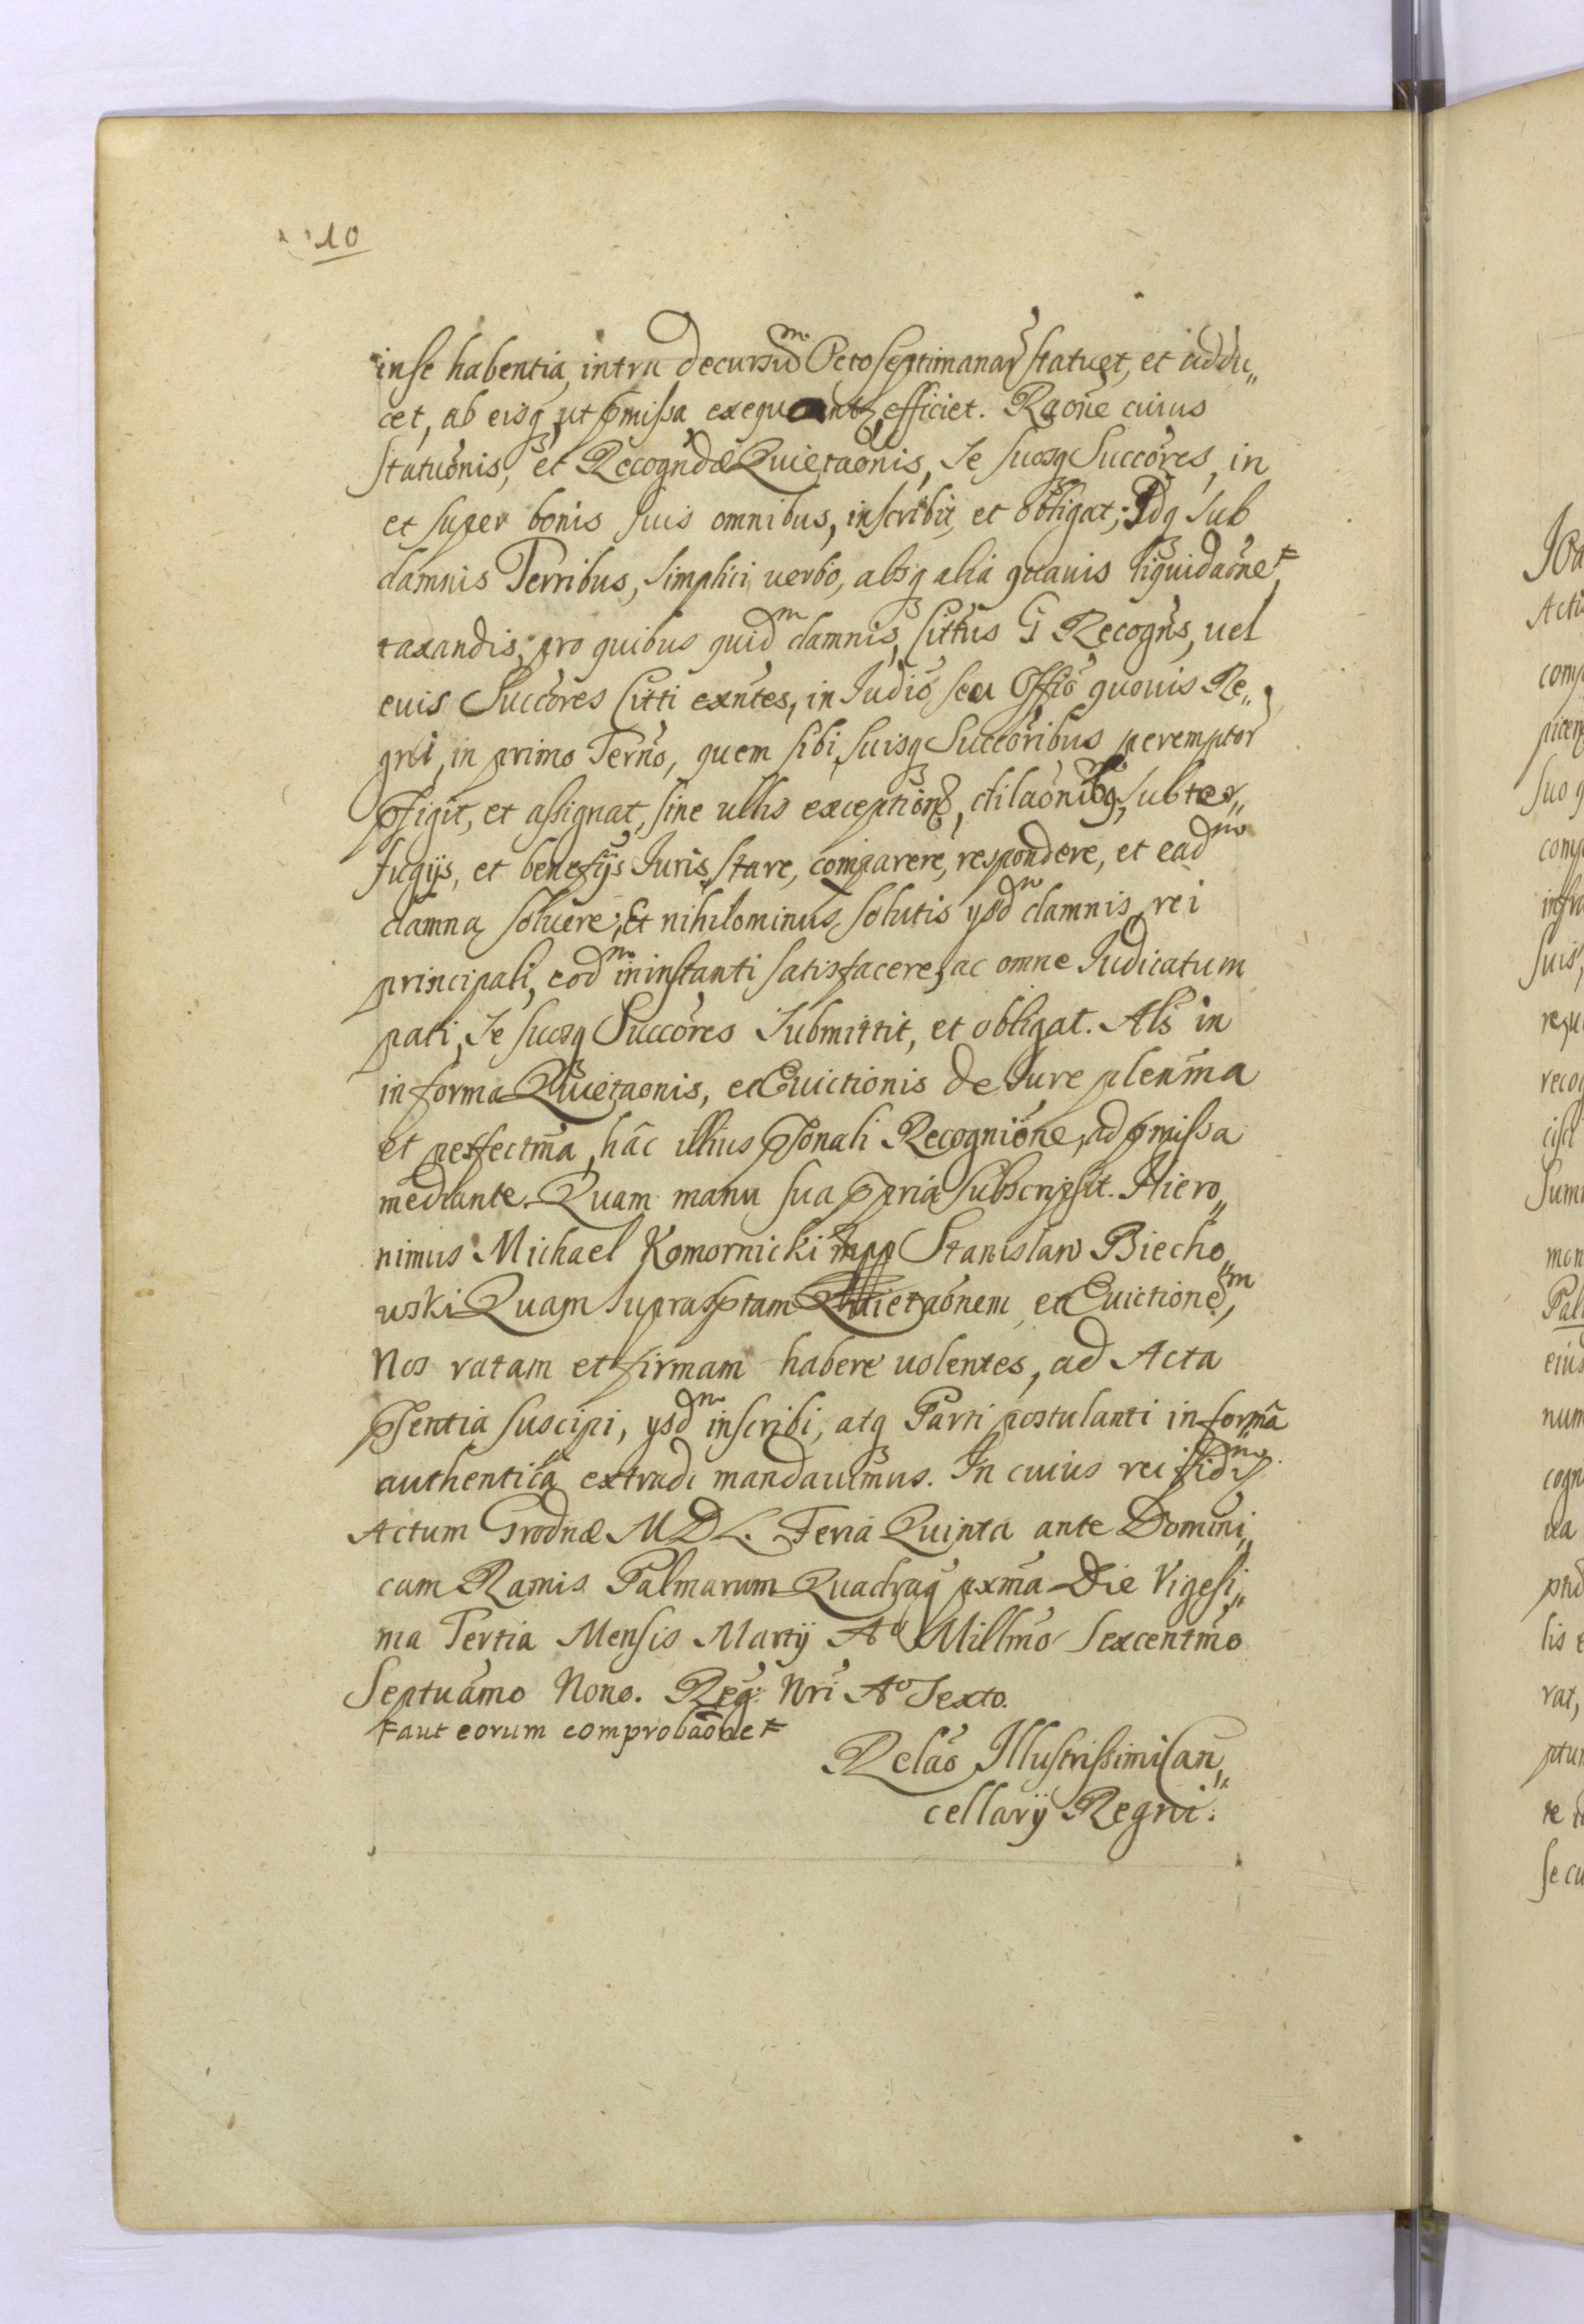 10
in se habentia, intra decursũ Octo Septimanaꝝ statuet, et addu„
cet, ab eisq̃ ut p̃missa exequantꝫ, efficiet. Raõne cuius
statuõnis, et Recogñdæ Quietaõnis, Se suosq̃ Succõres, in
et super bonis suis omnibus, inscribit, et obligat; Idq̃ sub
damnis Terribus, simplici verbo, absq̃ alia quauis liquidaõne ⧧
taxandis; pro quibus quidm damnis, Cittus G Recogñs, uel
euis Succõres Citti exñtes, in Judiõ seu Offiõ quouis Re„
gni, in primo Terño, quem sibi, suisq̃ Succõribus peremptor
p̃figit, et assignat, sine ullis exception̄ꝫ, dilaõnibꝫ, subter„
fugijs, et benefijs Juris, stare, comparere, respondere, et eadm
damna soluere; Et nihilominus, solutis ysdm damnis, rei
principali, eodm in instanti satisfacere, ac omne Judicatum
pati, Se suosq̃ Succõres Submittit, et obligat. Als̃ in
in forma Quietaonis, et Euictionis de Jure pleñma
et perfectm̃a, hãc illius p̃sonali Recogniõne, ad p̃missa
mediante. Quam manu sua p̃pria subscripsit. Hiero„
nimus Michael Komornicki mpp Stanislaw Biecho„
wski Quam suprasp̃tam Quietaõnem, et Euictionem,
Nos ratam et firmam habere uolentes, ad Acta
p̃sentia suscipi, ysdm inscribi, atq̃ Parti postulanti in formã
authenticã extradi mandauimus. In cuius rei fidm
Actum Grodnæ M D L. Feria Quinta ante Domini„
cam Ramis Palmarum Quadrag̃ pxm̃a Die Vigesi„
ma Tertia Mensis Martij Ao Millm̃o Sexcentm̃o
Septuãmo Nono. Reg̃: Nr̃i Ao Sexto.
⧧ aut eorum comprobaõne ⧧
Relaõ Illustrissimi Can„
cellarij Regni.